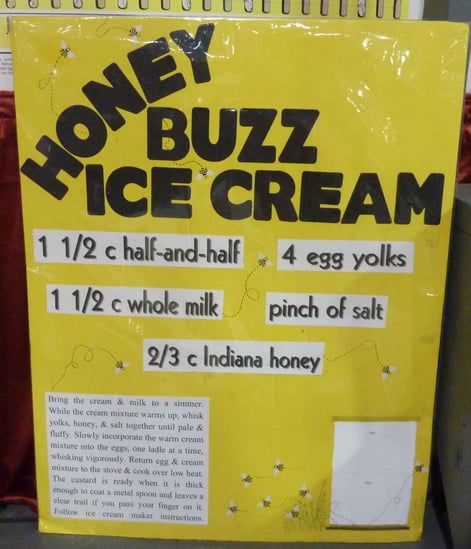 HONEY
BUZZ
ICE CREAM
1 1/2 c half-and-half
4 egg yolks
1 1/2 c whole milk
pinch of salt
2/3 c Indiana honey
Bring the cream & milk to a simmer.
While the cream mixture warms up, whisk
yolks, honey, & salt together until pale &
fluffy. Slowly incorporate the warm cream
mixture into the eggs, one ladle at a time,
whisking vigorously. Return egg & cream
mixture to the stove & cook over low heat.
The custard is ready when it is thick
enough to coat a metal spoon and leaves a
clear trail if you pass your finger on it.
Follow ice cream maker instructions.